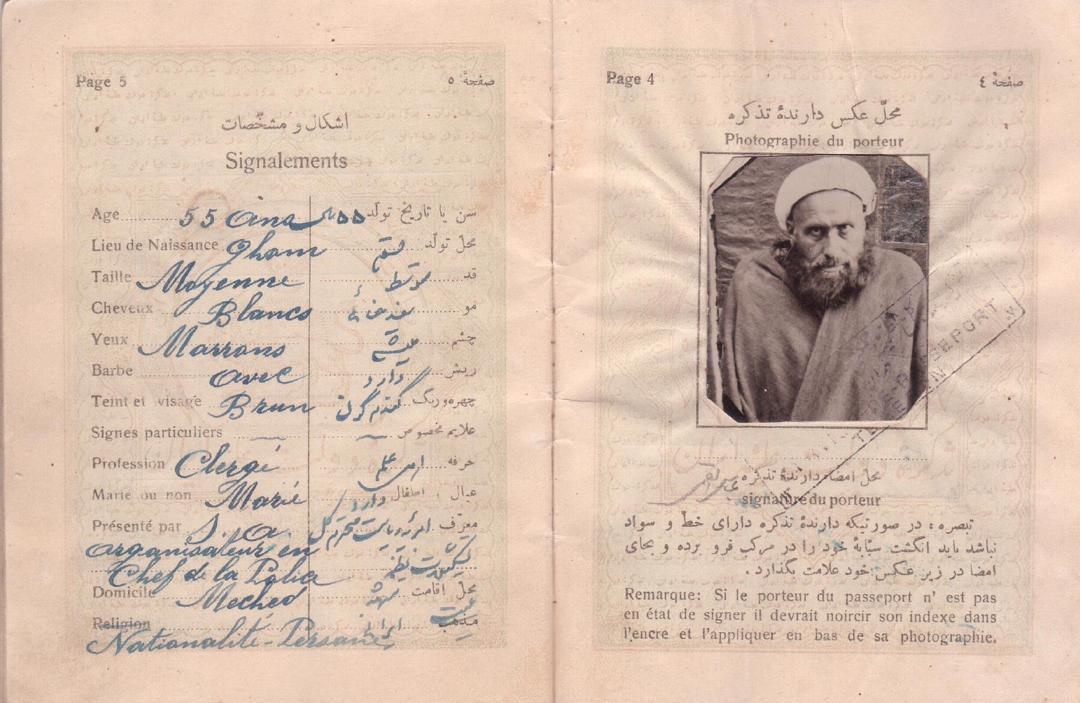 Page 5
صفحهٔ ٥
اشکال و مشخّصات
Signalements
Age 55 ans ٥٥ سن یا تاریخ تولد
Lieu de Naissance Ghom قم محلّ تولّد
Taille Moyenne متوسط قد
Cheveux Blancs مو
Yeux Marrons میشی چشم
Barbe avec دارد ریش
Teint et visage Brun گندم گون چهره و رنگ
Signes particuliers علایم مخصوص
Profession Clergé اهل علم حرفه
Marié ou non Marié دارد عیال و اطفال
Présenté par S. a. معرّف
organisateur en
Chef de la Police
Domicile Meched مشهد محلّ اقامت
Religion
Nationalité - Persane
Page 4
صفحهٔ ٤
محلّ عکس دارندهٔ تذکره
Photographie du porteur
PASSEPORT
محل امضاء دارندهٔ تذکره
signature du porteur
تبصره : در صورتیکه دارندهٔ تذکره دارای خطّ و سواد
نباشد باید انگشت سبّابهٔ خود را در مرکب فرو برده و بجای
امضا در زیر عکس خود علامت بگذارد .
Remarque: Si le porteur du passeport n' est pas
en état de signer il devrait noircir son indexe dans
l'encre et l'appliquer en bas de sa photographie.